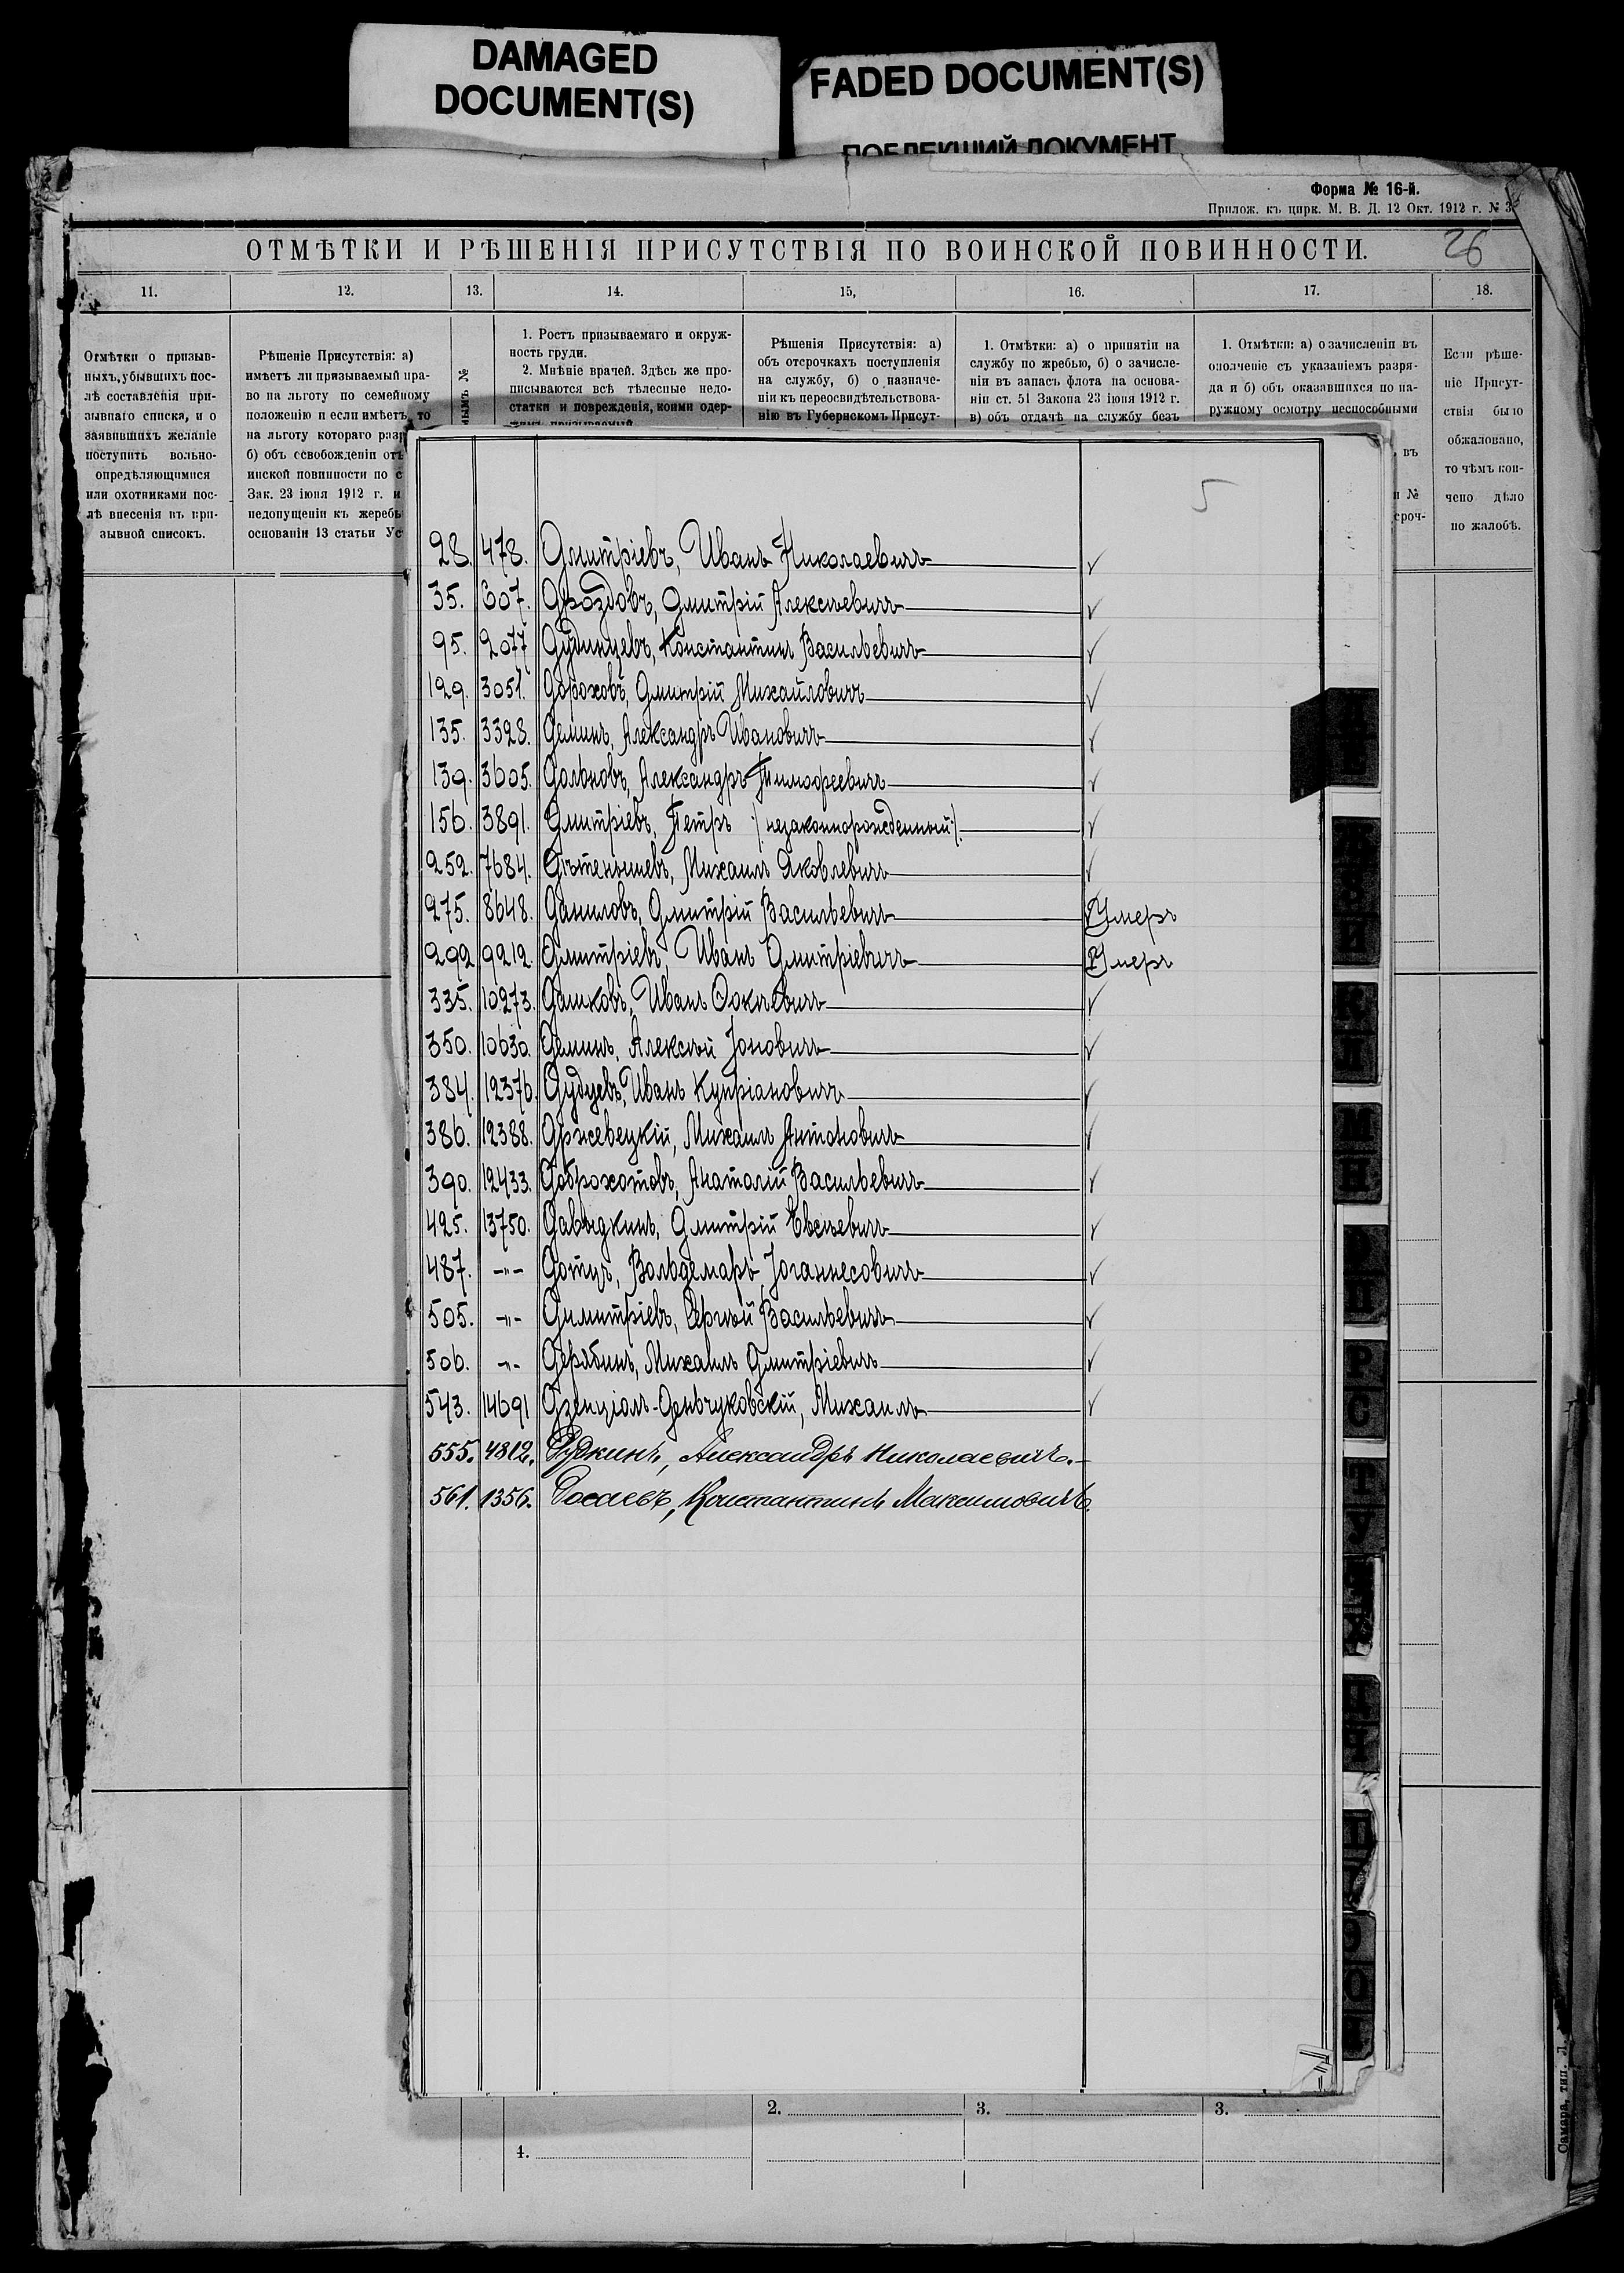 DAMAGED
DOCUMENT(S)
FADED DOCUMENT(S)
ПОБЛЕКШИЙ ДОКУМЕНТ
Форма № 16-й.
Прилож. къ цирк. М. В. Д. 12 Окт. 1912 г. № 3
ОТМѢТКИ И РѢШЕНІЯ ПРИСУТСТВІЯ ПО ВОИНСКОЙ ПОВИННОСТИ.
26
11. 12. 13. 14. 15, 16. 17. 18.
Отмѣтки о призыв-
ныхъ, убывшихъ пос-
лѣ составленія при-
зывнаго списка, и о
заявившихъ желаніе
поступить вольно-
опредѣляющимися
или охотниками пос-
лѣ внесенія въ при-
зывной списокъ.
Рѣшеніе Присутствія: а)
имѣетъ ли призываемый пра-
во на льготу по семейному
положенію и если имѣетъ, то
на льготу котораго разр
б) объ освобожденіи отъ
инской повинности по с
Зак. 23 іюня 1912 г. и
недопущеніи къ жеребь
основаніи 13 статьи Ус
нымъ №
1. Ростъ призываемаго и окруж-
ность груди.
2. Мнѣніе врачей. Здѣсь же про-
писываются всѣ тѣлесные недо-
статки и поврежденія, коими одер-
жимъ призываемый.
Рѣшенія Присутствія: а)
объ отсрочкахъ поступленія
на службу, б) о назначе-
ніи къ переосвидѣтельствова-
нію въ Губернскомъ Присут-
1. Отмѣтки: а) о принятіи на
службу по жребью, б) о зачисле-
ніи въ запасъ флота на основа-
ніи ст. 51 Закона 23 іюня 1912 г.
в) объ отдачѣ на службу безъ
1. Отмѣтки: а) о зачисленіи въ
ополченіе съ указаніемъ разря-
да и б) объ оказавшихся по на-
ружному осмотру неспособными
, въ
и №
сроч-
Если рѣше-
ніе Присут-
ствія было
обжаловано,
то чѣмъ кон-
чено дѣло
по жалобѣ.
5
28. 478. Дмитріевъ, Иванъ Николаевичъ
35. 607. Дроздовъ, Дмитрій Алексѣевичъ
95. 2077 Дудинцевъ, Константинъ Васильевичъ
129. 3051. Дороховъ, Дмитрій Михайловичъ
135. 3328. Деминъ, Александръ Ивановичъ
139. 3605. Дольновъ, Александръ Тимофеевичъ
156. 3891. Дмитріевъ, Петръ /незаконнорожденный/.
252. 7684. Дѣтенышевъ, Михаилъ Яковлевичъ
275. 8648. Даниловъ, Дмитрій Васильевичъ Умеръ
292 9212. Дмитріевъ, Иванъ Дмитріевичъ Умеръ
335. 10273. Дашковъ, Иванъ Фокѣевичъ
350. 10630. Деминъ, Алексѣй Іоновичъ
384. 12376. Дудуевъ, Иванъ Купріановичъ
386. 12388. Држевецкій, Михаилъ Антоновичъ
390. 12433. Доброхотовъ, Анатолій Васильевичъ
425. 13750. Давыдкинъ, Дмитрій Евсѣевичъ
487. -"- Дотцъ, Вольдемаръ Іоганнесовичъ
505. -"- Димитріевъ, Сергѣй Васильевичъ
506. -"- Дерябинъ, Михаилъ Дмитріевичъ
543. 14691 Дзенціолъ-Деньчуковскій, Михаилъ
555. 4812. Дудкинъ, Александръ Николаевичъ.
561. 1356. Досаевъ, Константинъ Максимовичъ.
2. 3. 3.
4.
Самара, тип. Л.